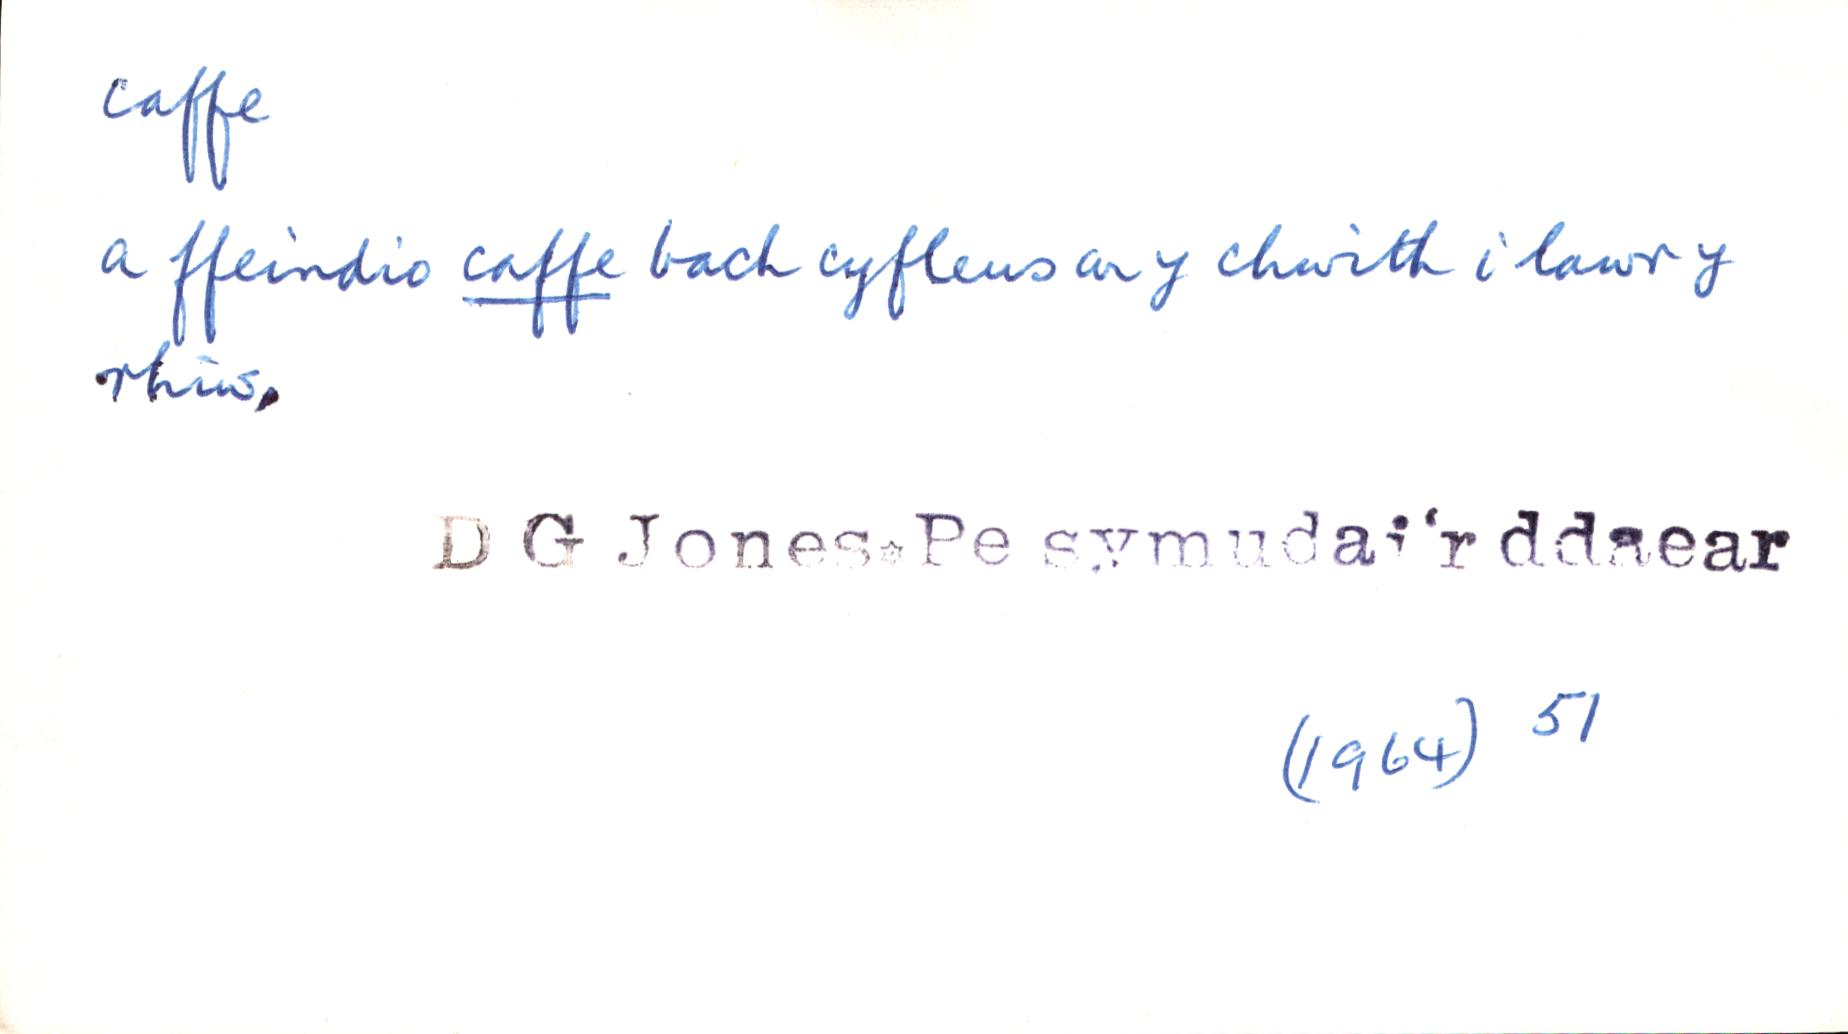 caffe
a ffeindio caffe bach cyfleus ar y chwith i lawr y
rhiw.
D G Jones: Pe symudai'r ddaear
(1964) 51